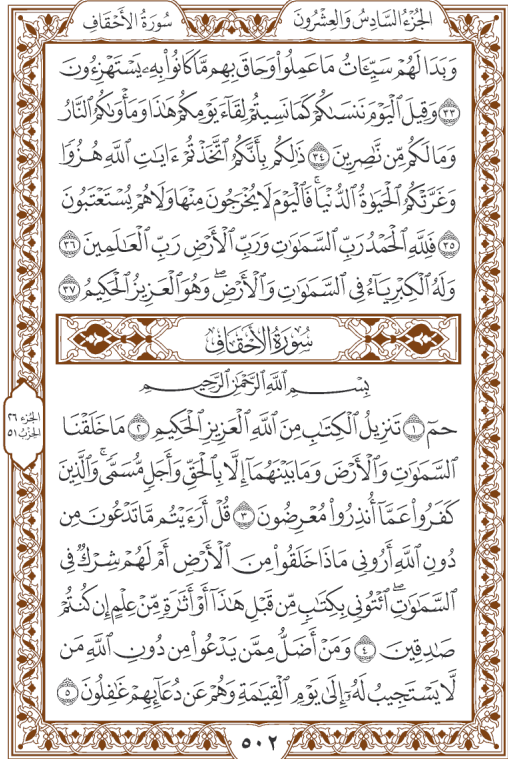 الجُزْءُ السَّادِسُ وَالعِشْرُونَ
سُورَةُ الأَحْقَافِ
وَبَدَا لَهُمْ سَيِّـَٔاتُ مَا عَمِلُوا۟ وَحَاقَ بِهِم مَّا كَانُوا۟ بِهِۦ يَسْتَهْزِءُونَ
٣٣ وَقِيلَ ٱلْيَوْمَ نَنسَىٰكُمْ كَمَا نَسِيتُمْ لِقَآءَ يَوْمِكُمْ هَـٰذَا وَمَأْوَىٰكُمُ ٱلنَّارُ
وَمَا لَكُم مِّن نَّـٰصِرِينَ ٣٤ ذَٰلِكُم بِأَنَّكُمُ ٱتَّخَذْتُمْ ءَايَـٰتِ ٱللَّهِ هُزُوًا
وَغَرَّتْكُمُ ٱلْحَيَوٰةُ ٱلدُّنْيَا ۚ فَٱلْيَوْمَ لَا يُخْرَجُونَ مِنْهَا وَلَا هُمْ يُسْتَعْتَبُونَ
٣٥ فَلِلَّهِ ٱلْحَمْدُ رَبِّ ٱلسَّمَـٰوَٰتِ وَرَبِّ ٱلْأَرْضِ رَبِّ ٱلْعَـٰلَمِينَ ٣٦
وَلَهُ ٱلْكِبْرِيَآءُ فِى ٱلسَّمَـٰوَٰتِ وَٱلْأَرْضِ ۖ وَهُوَ ٱلْعَزِيزُ ٱلْحَكِيمُ ٣٧
سُورَةُ الأَحْقَافِ
بِسْمِ ٱللَّهِ ٱلرَّحْمَـٰنِ ٱلرَّحِيمِ
حمٓ ١ تَنزِيلُ ٱلْكِتَـٰبِ مِنَ ٱللَّهِ ٱلْعَزِيزِ ٱلْحَكِيمِ ٢ مَا خَلَقْنَا
ٱلسَّمَـٰوَٰتِ وَٱلْأَرْضَ وَمَا بَيْنَهُمَآ إِلَّا بِٱلْحَقِّ وَأَجَلٍ مُّسَمًّى ۚ وَٱلَّذِينَ
كَفَرُوا۟ عَمَّآ أُنذِرُوا۟ مُعْرِضُونَ ٣ قُلْ أَرَءَيْتُم مَّا تَدْعُونَ مِن
دُونِ ٱللَّهِ أَرُونِى مَاذَا خَلَقُوا۟ مِنَ ٱلْأَرْضِ أَمْ لَهُمْ شِرْكٌ فِى
ٱلسَّمَـٰوَٰتِ ۖ ٱئْتُونِى بِكِتَـٰبٍ مِّن قَبْلِ هَـٰذَآ أَوْ أَثَـٰرَةٍ مِّنْ عِلْمٍ إِن كُنتُمْ
صَـٰدِقِينَ ٤ وَمَنْ أَضَلُّ مِمَّن يَدْعُوا۟ مِن دُونِ ٱللَّهِ مَن
لَّا يَسْتَجِيبُ لَهُۥٓ إِلَىٰ يَوْمِ ٱلْقِيَـٰمَةِ وَهُمْ عَن دُعَآئِهِمْ غَـٰفِلُونَ ٥
الجزء ٢٦
الحزب ٥١
٥٠٢